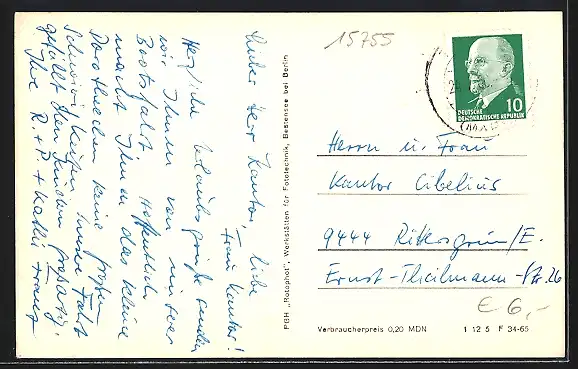 15755
Lieber Herr Kantor, liebe
Frau Kantor!
Herzliche Urlaubsgrüße senden
wir Ihnen von unserer
Bootsfahrt. Hoffentlich
macht Ihnen das kleine
Dorotheechen keine großen
Schwierigkeiten. Unsere Fahrt
gefällt den Kindern prächtig.
Ihre R. + P. +
PGH „Rotophot“, Werkstätten für Fototechnik, Bestensee bei Berlin
DEUTSCHE
DEMOKRATISCHE REPUBLIK
10
Herrn u. Frau
Kantor Cibelius
9444 Rittersgrün/E.
Ernst-Thälmann-Str. 26
€ 6,-
Verbraucherpreis 0,20 MDN
1 12 5 F 34-65